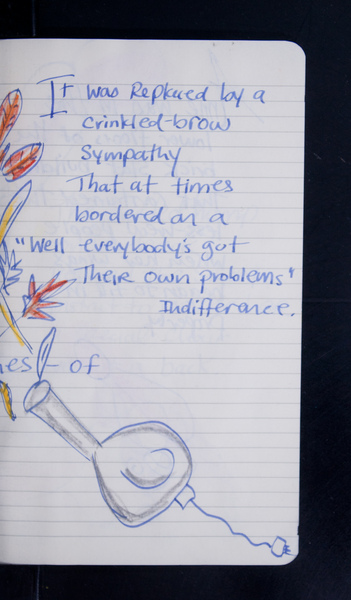 It was Replaced by a
crinkled-brow
Sympathy
That at times
bordered on a
"Well everybody's got
Their own problems"
Indifference.
of